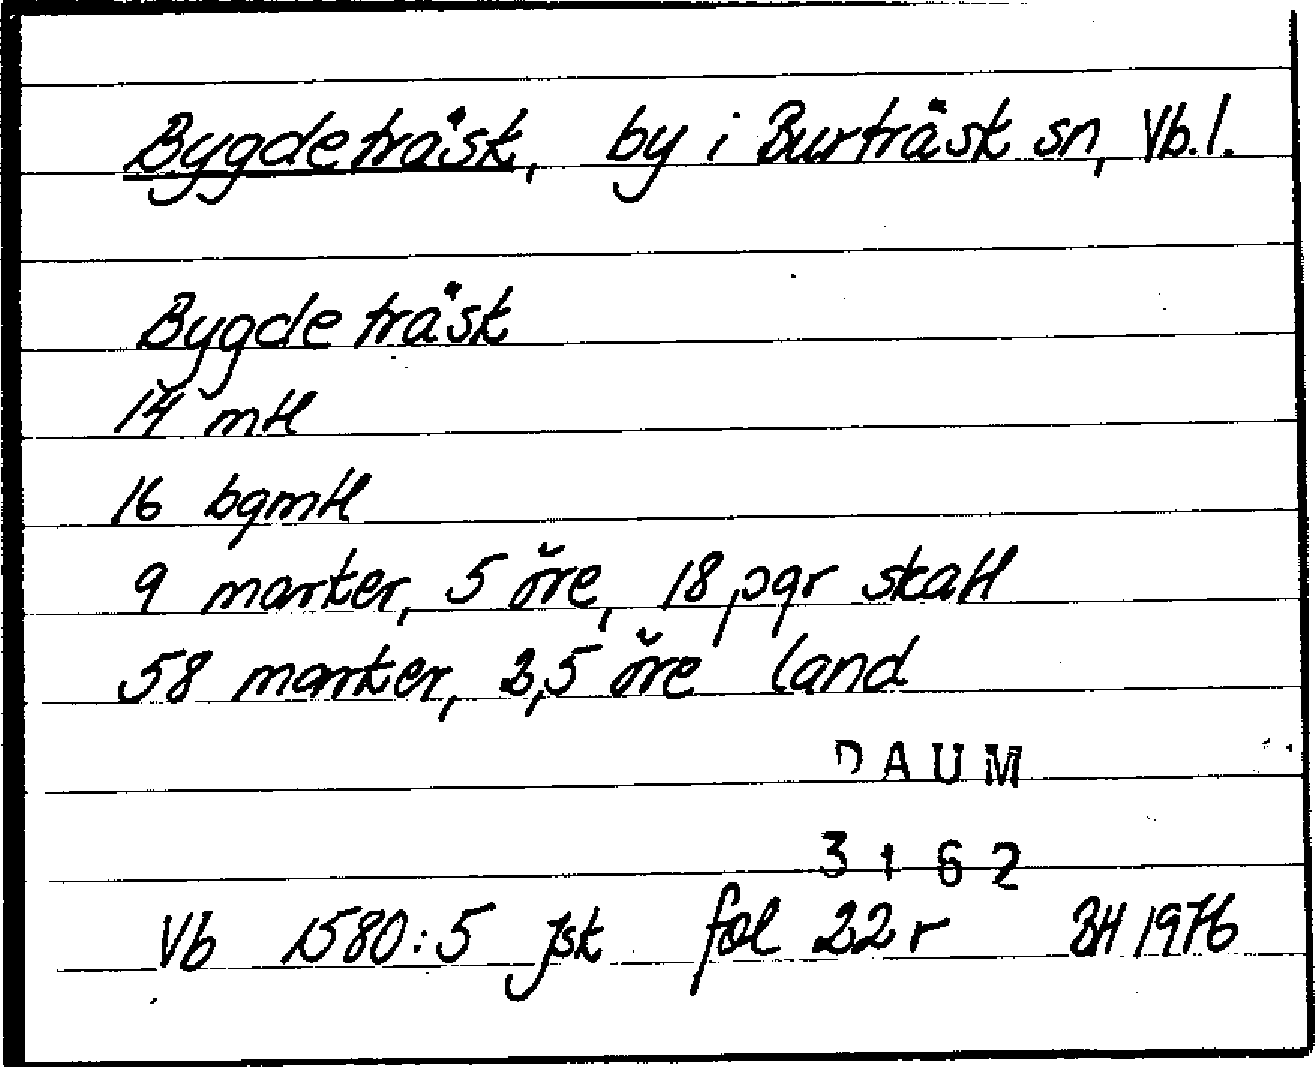 Bygdeträsk, by i Burträsk sn, Vb.l.
Bygdeträsk
14 mtl
16 bgmtl
9 marker, 5 öre, 18 pgr skatt
58 marker, 2,5 öre land
DAUM
3162
Vb 1580:5 jsk fol 22 r BH 1976